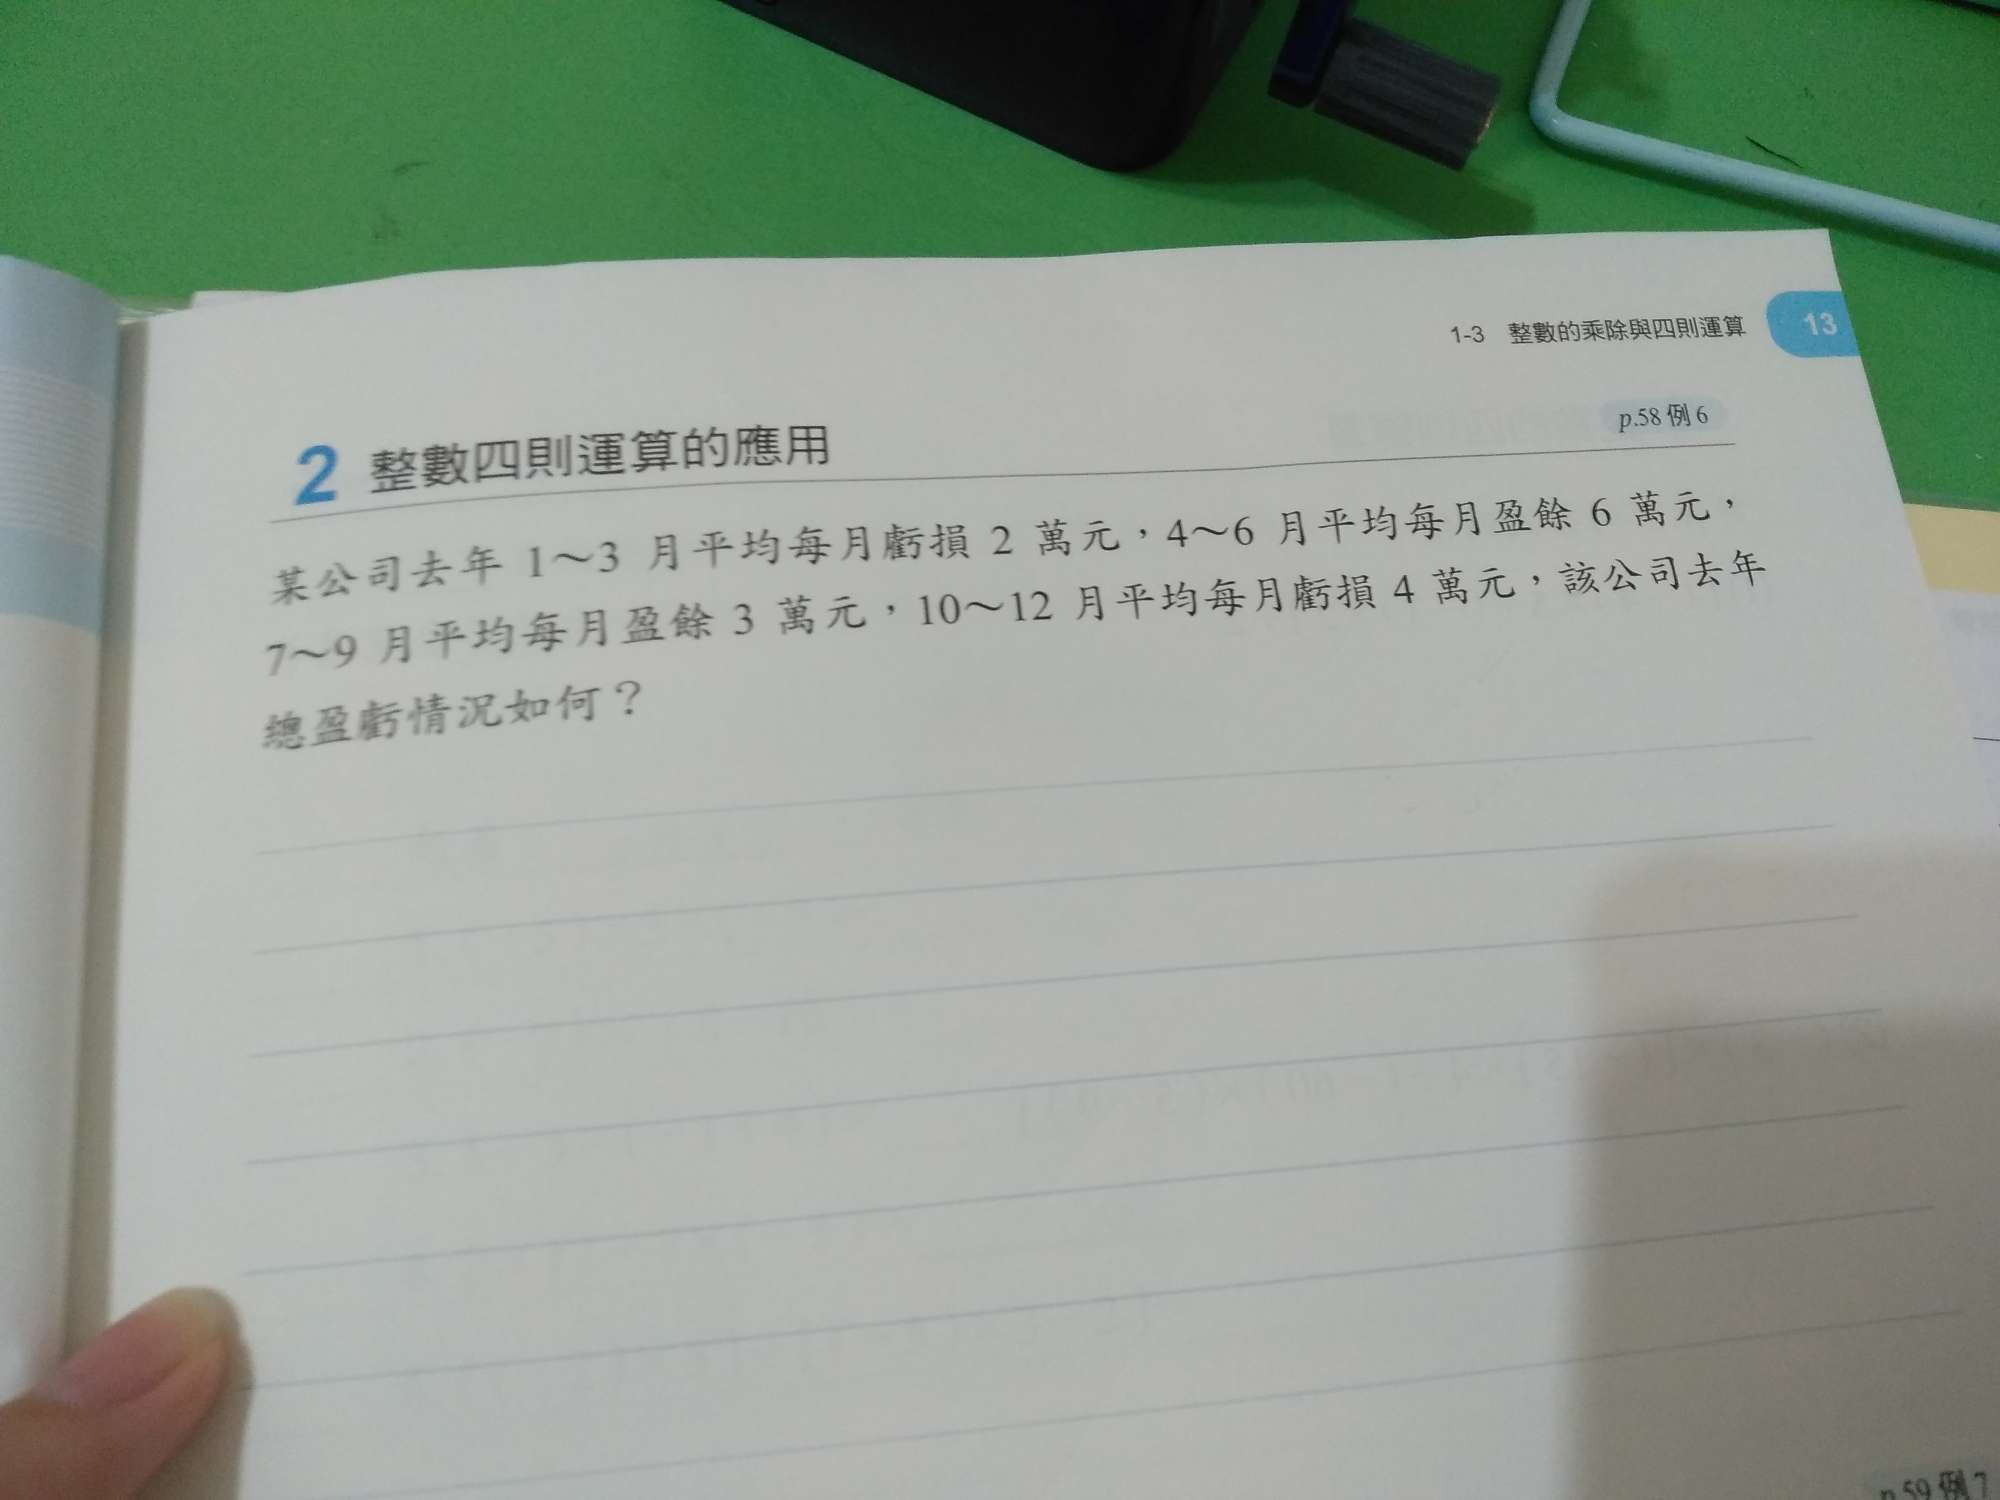 1-3 整數的乘除與四則運算 13
p.58 例 6
2 整數四則運算的應用
某公司去年 1～3 月平均每月虧損 2 萬元，4～6 月平均每月盈餘 6 萬元，
7～9 月平均每月盈餘 3 萬元，10～12 月平均每月虧損 4 萬元，該公司去年
總盈虧情況如何？
p.59 例 7